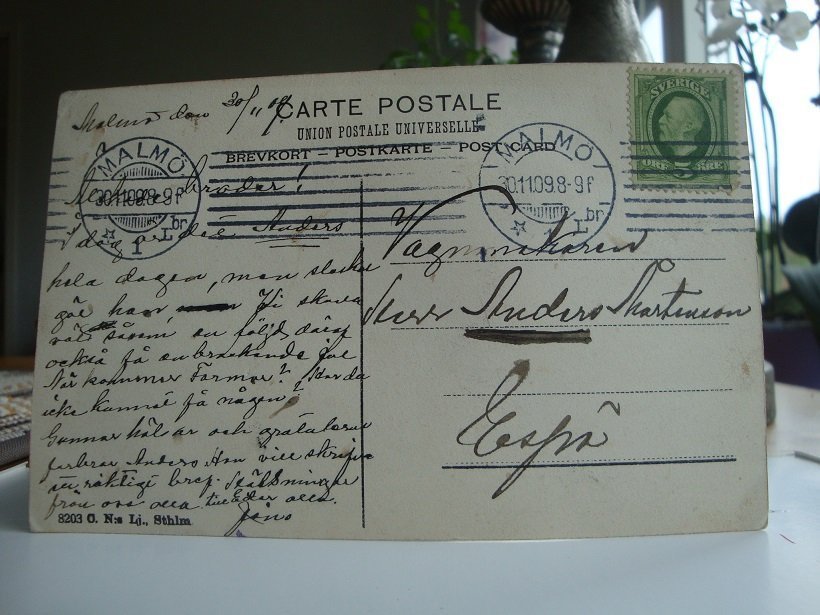 Malmö den 30/11 09.
CARTE POSTALE
UNION POSTALE UNIVERSELLE
BREVKORT – POSTKARTE – POST CARD
SVERIGE
MALMÖ
30.11.09.8-9 f
1 Lbr
MALMÖ
30.11.09.8-9 f
1 Lbr
broder!
i dag Anders
hela dagen, men
gör han Vi skola
som en följd däraf
också få en
När kommer Farmor? Har du
icke kunnat få någon?
Gunnar hälsar och gratulerar
farbror Anders. Han vill skrifva
ett riktigt bref.
från oss alla till Eder alla.
Jöns
Vagnmakaren
Herr Anders Mårtenson
Espö
8203 O. N:s Lj., Sthlm